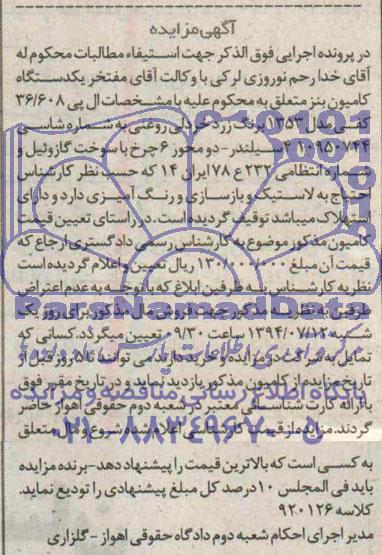 آگهی مزایده
در پرونده اجرایی فوق الذکر جهت استیفاء مطالبات محکوم له
آقای خدا رحم نوروزی لرکی با وکالت آقای مفتخر یکدستگاه
کامیون بنز متعلق به محکوم علیه با مشخصات ال پی ۳۶/۶۰۸
کفی مدل ۱۳۵۳ برنگ زرد خردلی روغنی به شماره شاسی
۱۰۹۵۰۷۴۴ ۴ سیلندر- دو محور ۶ چرخ با سوخت گازوئیل و
شماره انتظامی ۲۳۲ ع ۷۸ ایران ۱۴ که حسب نظر کارشناس
احتیاج به لاستیک و بازسازی و رنگ آمیزی دارد و دارای
استهلاک میباشد توقیف گردیده است. در راستای تعیین قیمت
کامیون مذکور موضوع به کارشناس رسمی دادگستری ارجاع که
قیمت آن مبلغ ۱۳۰/۰۰۰/۰۰۰ ریال تعیین و اعلام گردیده است
نظریه کارشناس به طرفین ابلاغ که با توجه به عدم اعتراض
طرفین به نظریه مذکور جهت فروش مال مذکور برای روز یک
شنبه ۱۳۹۴/۰۷/۱۲ ساعت ۰۹/۳۰ تعیین میگردد. کسانی که
تمایل به شرکت در مزایده و خرید دارند می توانند تا ۵ روز قبل از
تاریخ مزایده از کامیون مذکور بازدید نماید و در تاریخ مقرر فوق
با ارائه کارت شناسائی معتبر در شعبه دوم حقوقی اهواز حاضر
گردند. مزایده از قیمت کارشناسی اعلام شده شروع و مال متعلق
به کسی است که بالاترین قیمت را پیشنهاد دهد- برنده مزایده
باید فی المجلس ۱۰ درصد کل مبلغ پیشنهادی را تودیع نماید.
کلاسه ۹۲۰۱۲۶
مدیر اجرای احکام شعبه دوم دادگاه حقوقی اهواز - گلزاری
ParsNamadData
پایگاه اطلاع رسانی مناقصه و مزایده
۰۲۱-۸۸۳۴۹۶۷۰-۵